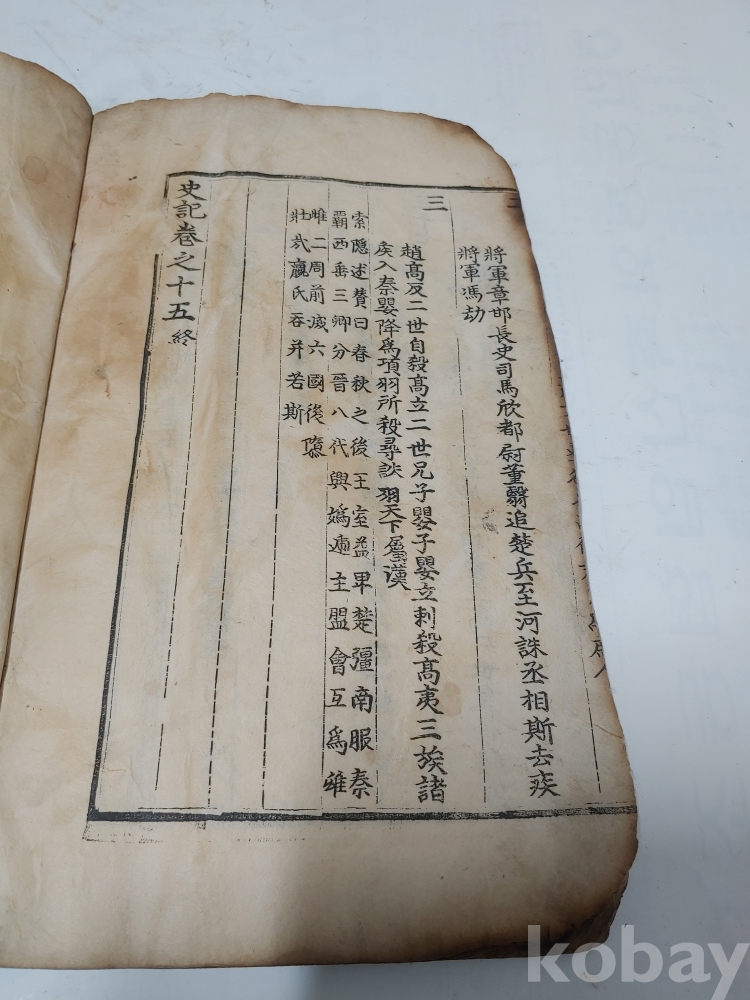 二
將軍章邯長史司馬欣都尉董翳追楚兵至河誅丞相斯去疾
將軍馮劫
三
趙高反二世自殺高立二世兄子嬰子嬰立刺殺高夷三族諸
侯入秦嬰降爲項羽所殺尋誅羽天下屬漢
索隱述賛曰春秋之後王室益卑楚彊南服秦
霸西垂三卿分晉八代興嬀遞主盟會互爲雄
雌二周前滅六國後隳
壯哉嬴氏吞并若斯
史記卷之十五終
kobay